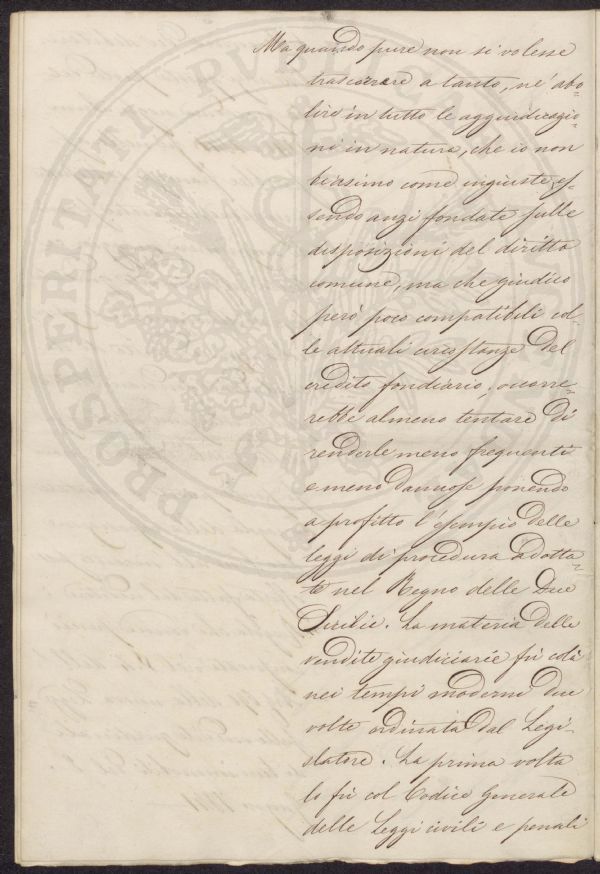 Ma quando pure non si volesse
trascorrere a tanto, nè abo-
lire in tutto le aggiudicazio-
ni in natura, che io non
biasimo come ingiuste, es-
sendo anzi fondate sulle
disposizioni del diritto
comune, ma che giudico
però poco compatibili col-
le attuali circostanze del
credito fondiario, occorre-
rebbe almeno tentare di
renderle meno frequenti
e meno dannose ponendo
a profitto l'esempio delle
leggi di procedura adotta-
te nel Regno delle Due
Sicilie. La materia delle
vendite giudiciarie fù colà
nei tempi moderni due
volte ordinata dal Legi-
slatore. La prima volta
lo fù col Codice Generale
delle Leggi civili e penali
PROSPERITATI PVBLICAE